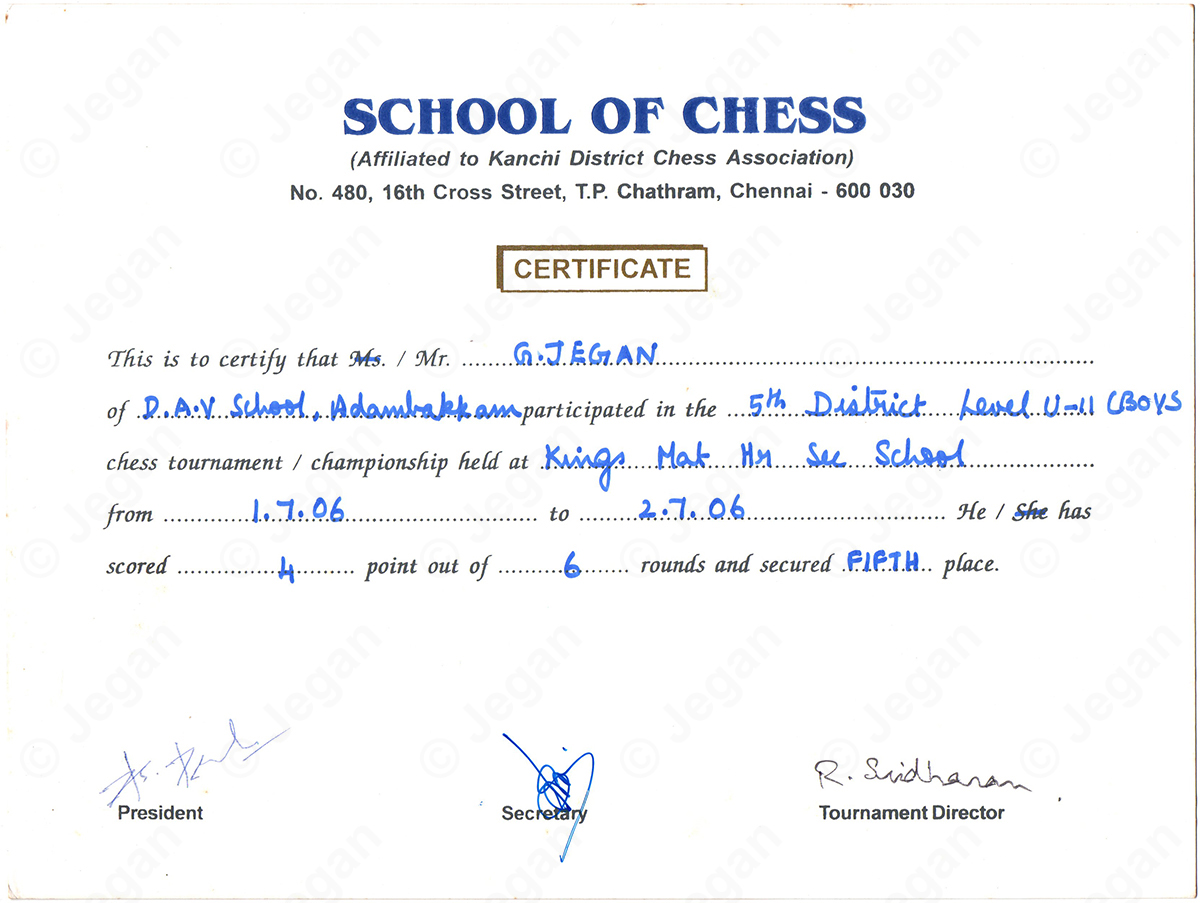 SCHOOL OF CHESS
(Affiliated to Kanchi District Chess Association)
No. 480, 16th Cross Street, T.P. Chathram, Chennai - 600 030
CERTIFICATE
This is to certify that Ms. / Mr. G.JEGAN
of D.A.V School, Adambakkam participated in the 5th District Level U-11 (BOYS
chess tournament / championship held at Kings Mat Hr Sec School
from 1.7.06 to 2.7.06 He / She has
scored 4 point out of 6 rounds and secured FIFTH place.
R. Sridharan
President Secretary Tournament Director
© Jegan